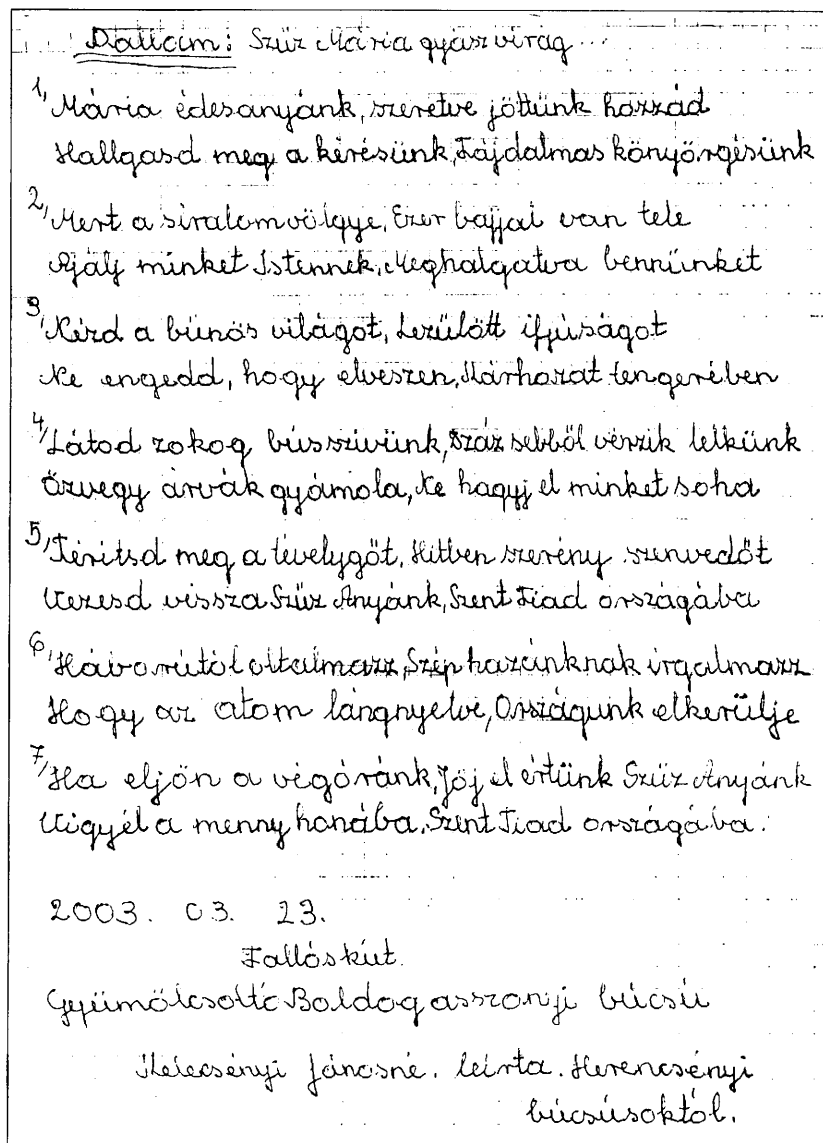 Dallam: Szűz Mária gyász virág...
1, Mária édesanyánk, szeretve jöttünk hozzád
Hallgasd meg a kérésünk, Fájdalmas könyörgésünk
2, Mert a siralom völgye, Ezer bajjal van tele
Ajálj minket Istennek, Meghalgatva bennünket
3, Nézd a bűnös világot, Lezülött ifjúságot
Ne engedd, hogy elveszen, Kárhozat tengerében
4, Látod zokog bús szívünk, száz sebből vérzik lelkünk
Özvegy árvák gyámola, Ne hagyj el minket soha
5, Térítsd meg a tévelygőt, Hitben szerény szenvedőt
Vezesd vissza Szűz Anyánk, Szent Fiad országába
6, Háborútól oltalmazz, Szép hazánknak irgalmazz
Hogy az atom lángnyelve, Országunk elkerülje
7, Ha eljön a végóránk, Jöj el értünk Szűz Anyánk
Vigyél a menny honába, Szent Fiad országába.
2003. 03. 23.
Fallóskút.
Gyümölcsoltó Boldogasszonyi búcsú
Kelecsényi Jánosné. leírta. Herencsényi
búcsúsoktól.